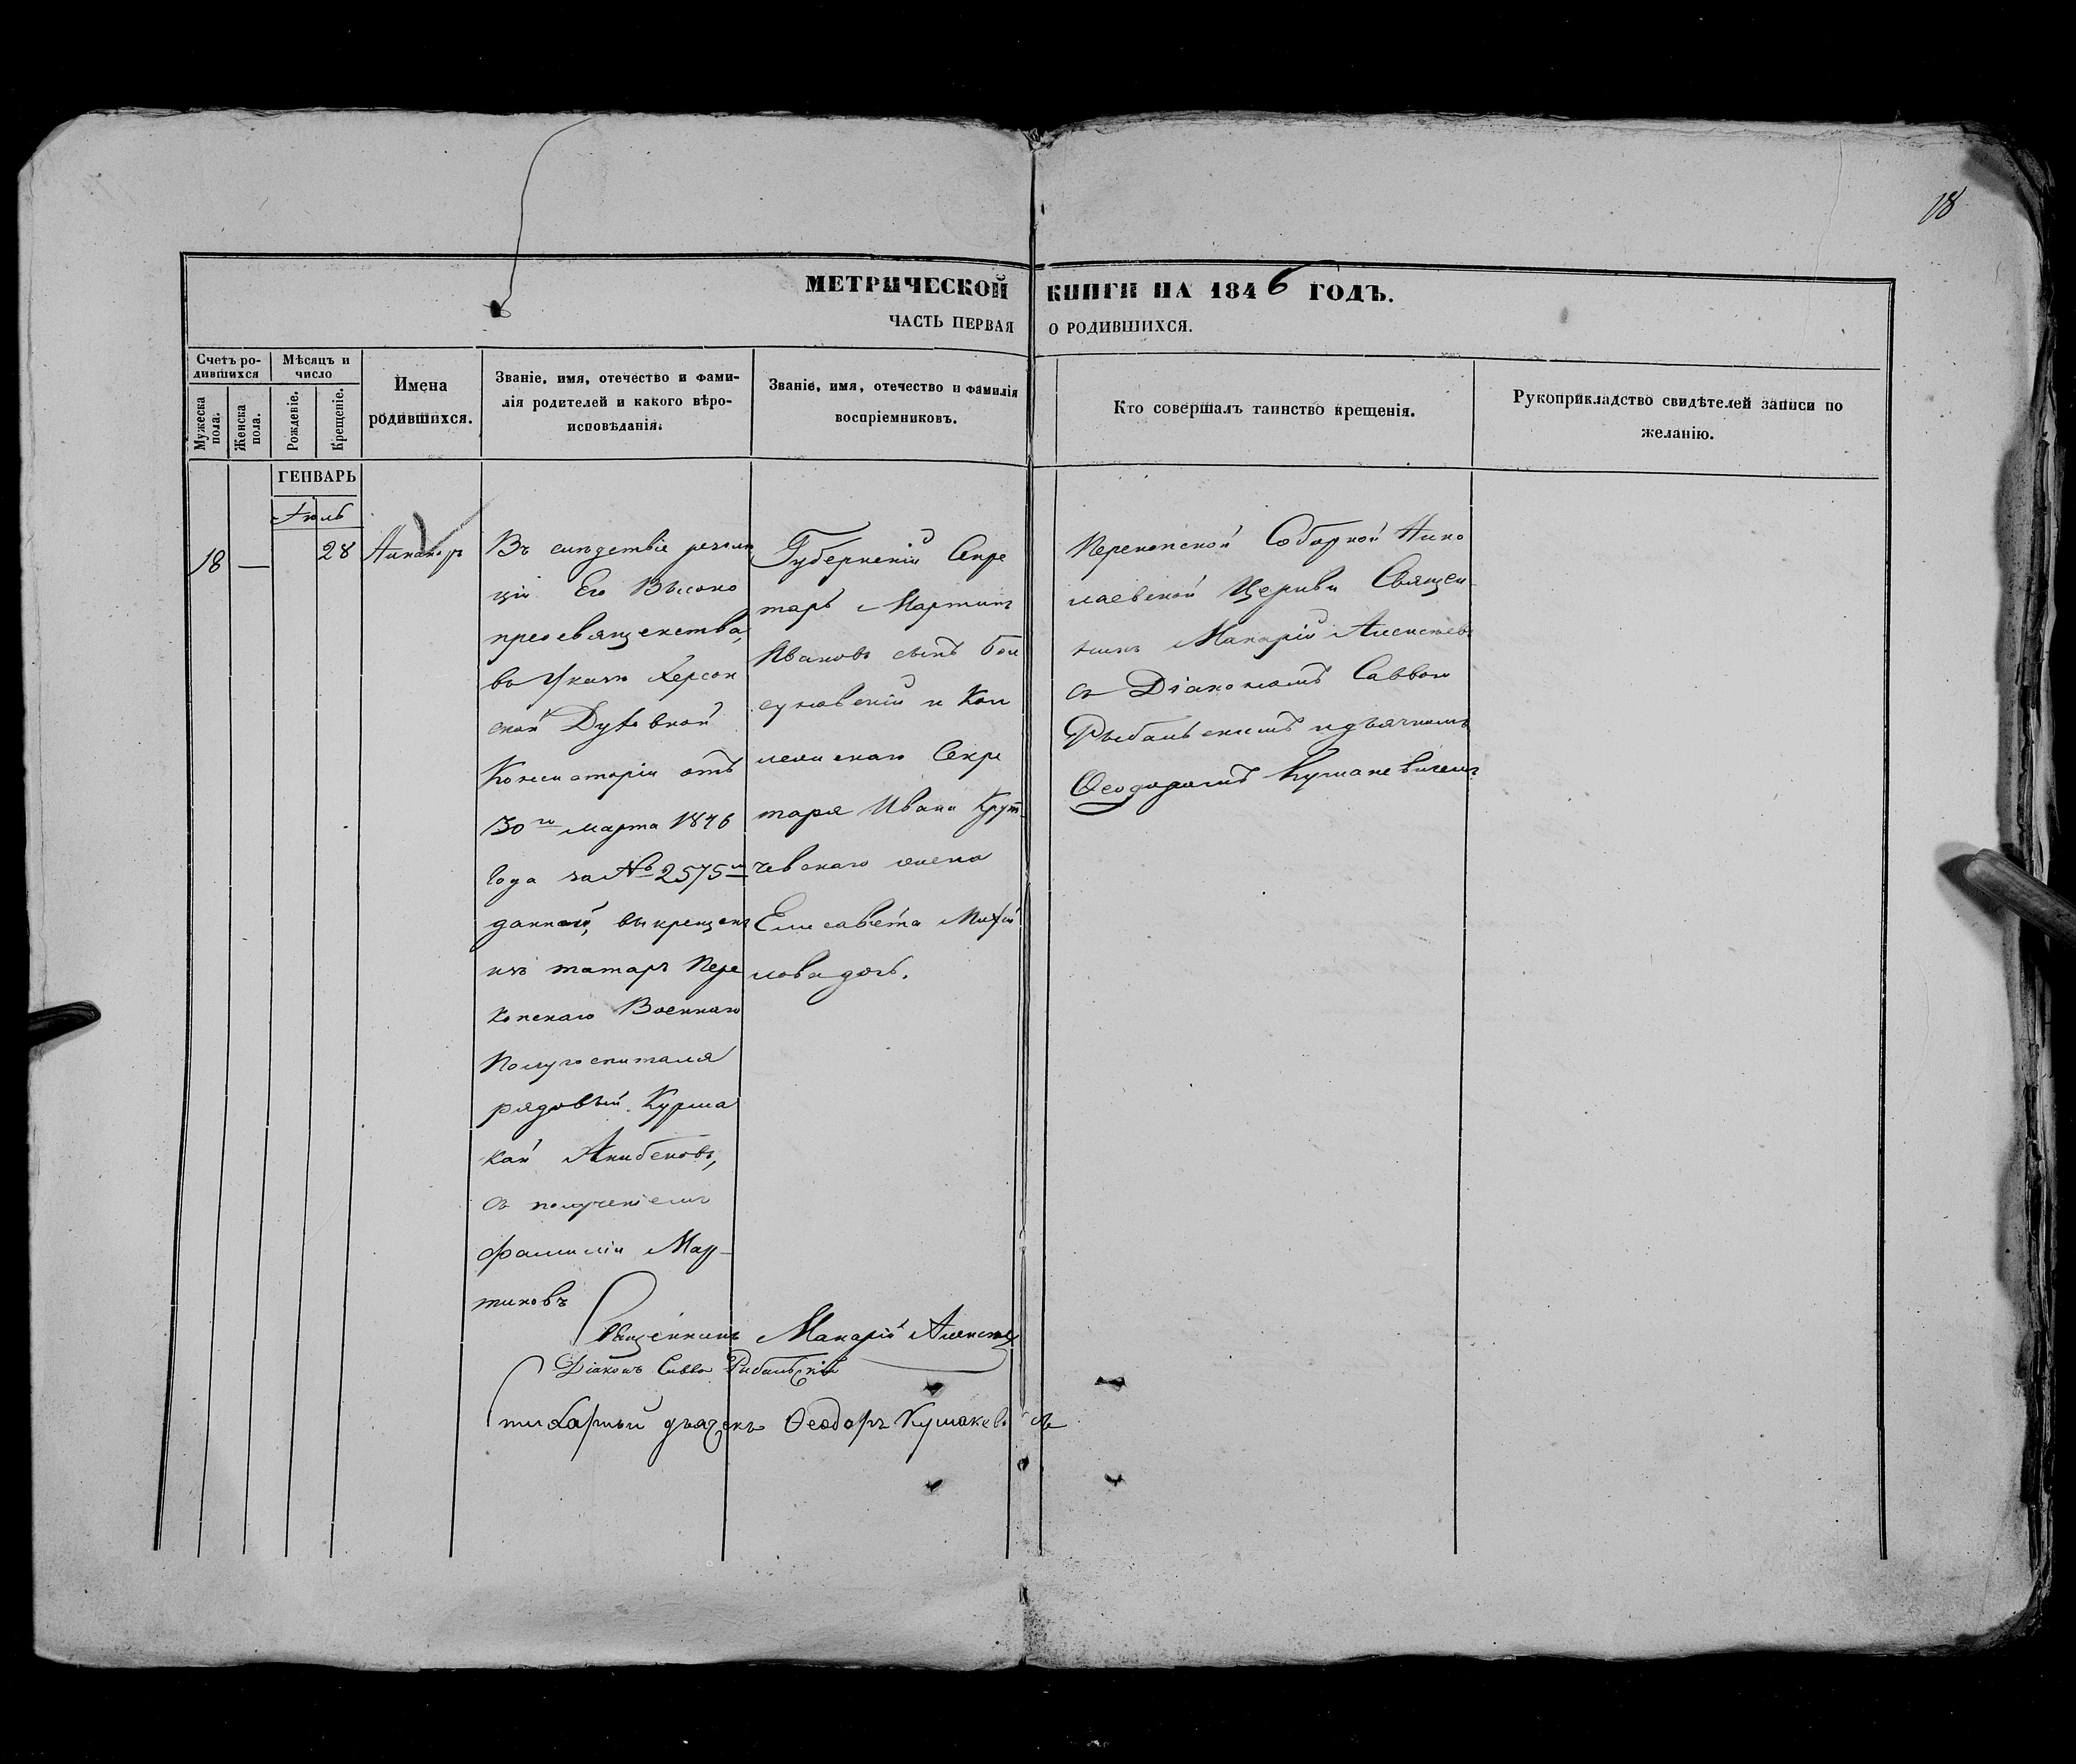 18
МЕТРИЧЕСКОЙ КНИГИ НА 1846 ГОДЪ.
ЧАСТЬ ПЕРВАЯ О РОДИВШИХСЯ.
Счетъ ро-
дившихся
Мужеска
пола.
Женска
пола.
Мѣсяцъ и
число
Рожденіе.
Крещеніе.
Имена
родившихся.
Званіе, имя, отечество и фами-
лія родителей и какого вѣро-
исповѣданія.
Званіе, имя, отечество и фамилія
воспріемниковъ.
Кто совершалъ таинство крещенія.
Рукоприкладство свидѣтелей записи по
желанію.
ГЕНВАРЬ
Іюль
18
—
28
Никаноръ
Въ слѣдствіе резолю
ціи Его Высоко
преосвященства,
въ Указѣ Херсон
ской Духовной
Консисторіи отъ
30го марта 1846
года за № 2575м
данной, выкрещенъ
изъ татаръ Пере
копскаго Военнаго
Полугоспиталя
рядовый Курма
кай Акибековъ,
съ полученіемъ
фамиліи Мар-
тиновъ
Губернскій Секре
тарь Мартинъ
Ивановъ сынъ
и Кол
лежскаго Секре
таря Ивана
жена
Елисавета Михай
лова дочь.
Перекопской Соборной Нико
лаевской Церкви Священ
никъ Макарій Алексѣевъ
съ Діакономъ Саввою
Рыбальскимъ и дьячкомъ
Ѳеодоромъ Кушакевичемъ
Священникъ Макарій Алексѣев
Діаконъ Савва Рыбальскій
стихарный дьячекъ Ѳеодоръ Кушакевичъ